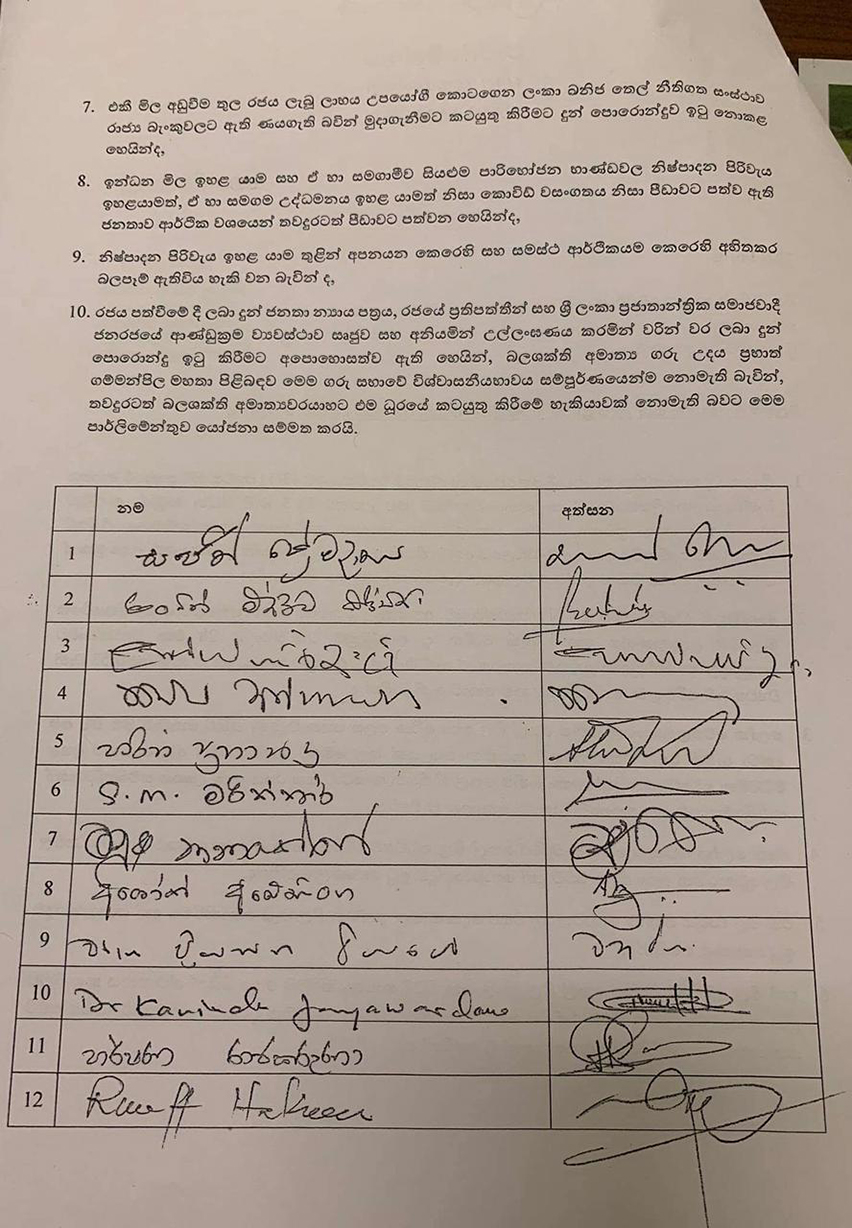 7. එකී මිල අඩුවීම තුල රජය ලැබූ ලාභය උපයෝගී කොටගෙන ලංකා ඛනිජ තෙල් නීතිගත සංස්ථාව
රාජ්‍ය බැංකුවලට ඇති ණයගැති බවින් මුදාගැනීමට කටයුතු කිරීමට දුන් පොරොන්දුව ඉටු නොකළ
හෙයින්ද,
8. ඉන්ධන මිල ඉහළ යාම සහ ඒ හා සමගාමීව සියළුම පාරිභෝජන භාණ්ඩවල නිෂ්පාදන පිරිවැය
ඉහළයාමත්, ඒ හා සමගම උද්ධමනය ඉහළ යාමත් නිසා කොවිඩ් වසංගතය නිසා පීඩාවට පත්ව ඇති
ජනතාව ආර්ථික වශයෙන් තවදුරටත් පීඩාවට පත්වන හෙයින්ද,
9. නිෂ්පාදන පිරිවැය ඉහළ යාම තුළින් අපනයන කෙරෙහි සහ සමස්ථ ආර්ථිකයම කෙරෙහි අහිතකර
බලපෑම් ඇතිවිය හැකි වන බැවින් ද,
10. රජය පත්වීමේ දී ලබා දුන් ජනතා න්‍යාය පත්‍රය, රජයේ ප්‍රතිපත්තීන් සහ ශ්‍රී ලංකා ප්‍රජාතාන්ත්‍රික සමාජවාදී
ජනරජයේ ආණ්ඩුක්‍රම ව්‍යවස්ථාව සෘජුව සහ අනියමින් උල්ලංඝණය කරමින් වරින් වර ලබා දුන්
පොරොන්දු ඉටු කිරීමට අපොහොසත්ව ඇති හෙයින්, බලශක්ති අමාත්‍ය ගරු උදය ප්‍රභාත්
ගම්මන්පිල මහතා පිළිබඳව මෙම ගරු සභාවේ විශ්වාසනීයභාවය සම්පූර්ණයෙන්ම නොමැති බැවින්,
තවදුරටත් බලශක්ති අමාත්‍යවරයාහට එම ධූරයේ කටයුතු කිරීමේ හැකියාවක් නොමැති බවට මෙම
පාර්ලිමේන්තුව යෝජනා සම්මත කරයි.
නම අත්සන
1 සජිත් ප්‍රේමදාස
2
3
4
5 හරින් ප්‍රනාන්දු
6 S.M. මරික්කාර්
7
8 අශෝක් අබේසිංහ
9
10 Dr Kavinda Jayawardana
11
12 Rauff Hakeem